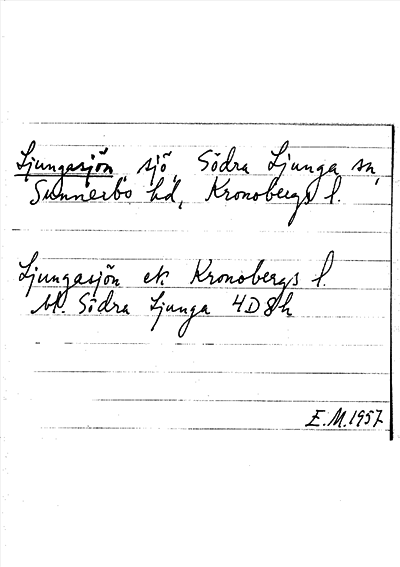 Ljungasjön, sjö, Södra Ljunga sn,
Sunnerbo hd, Kronobergs l.
Ljungasjön ek Kronobergs l.
bl. Södra Ljunga 4D8h
E.M. 1957